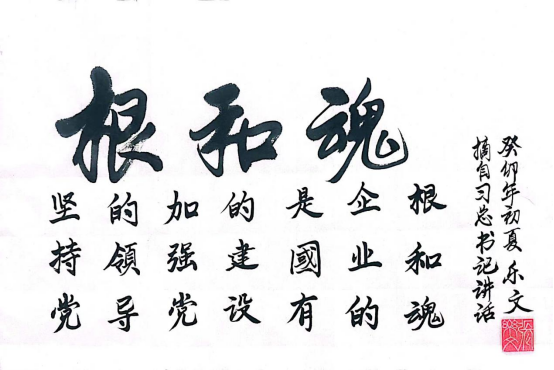 根和魂
坚持党
的領导
加强党
的建设
是國有
企业的
根和魂
摘自习总书记讲话
癸卯年初夏 乐文